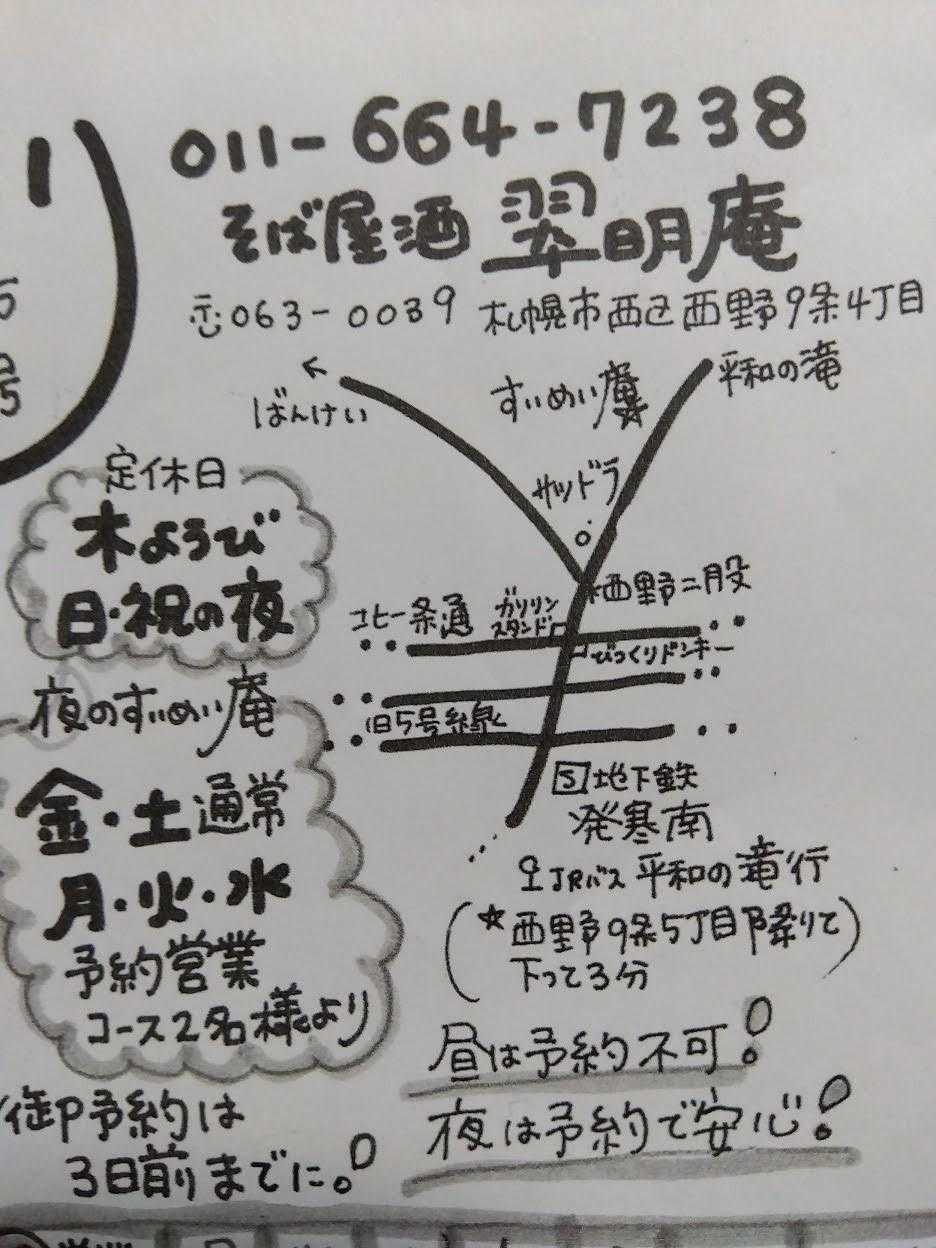 011-664-7238
そば屋酒 翠明庵
〒063-0039 札幌市西区西野9条4丁目
平和の滝
←
ばんけい
すいめい庵
サツドラ
定休日
木ようび
日・祝の夜
西野二股
北一条通
ガソリン
スタンド
びっくりドンキー
旧5号線
夜のすいめい庵
金・土通常
月・火・水
予約営業
コース2名様より
御予約は
3日前までに!
地下鉄
発寒南
JRバス 平和の滝行
(☆西野9条5丁目降りて
下って3分)
昼は予約不可!
夜は予約で安心!